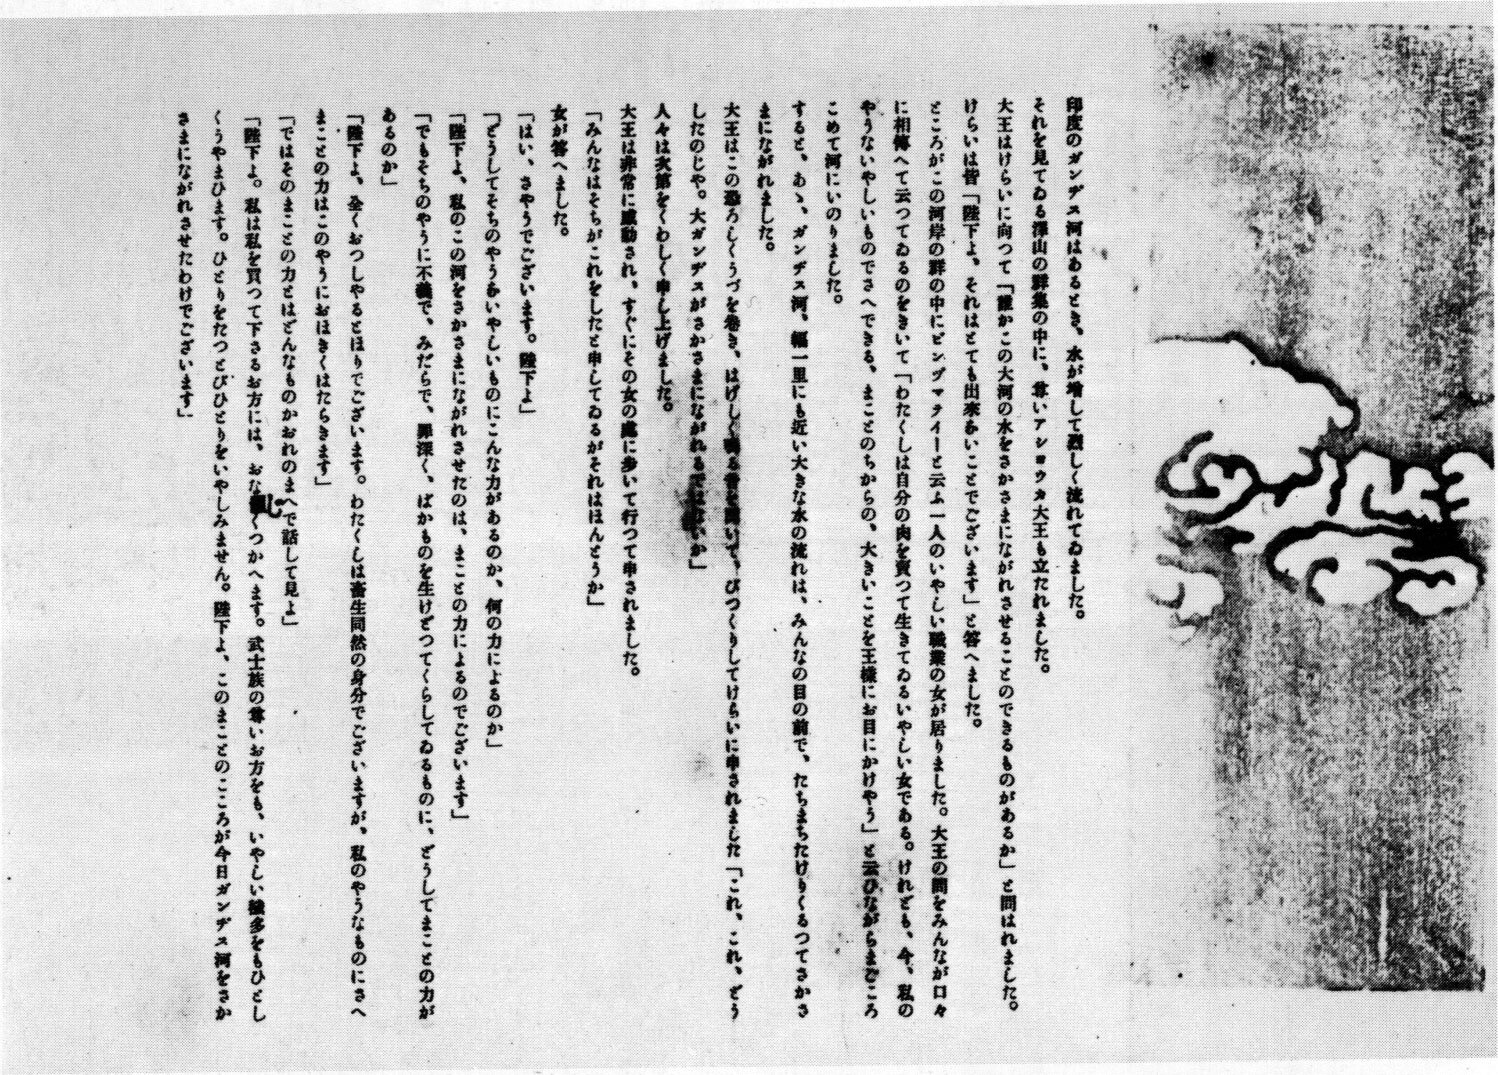 印度のガンヂス河はあるとき、水が増して烈しく流れてゐました。
それを見てゐる澤山の群集の中に、尊いアショウカ大王も立たれました。
大王はけらいに向つて「誰かこの大河の水をさかさまにながれさせることのできるものがあるか」と問はれました。
けらいは皆「陛下よ、それはとても出來ないことでございます」と答へました。
ところがこの河岸の群の中にビンヅマティーと云ふ一人のいやしい職業の女が居りました。大王の問をみんなが口々
に相傳へて云つてゐるのをきいて「わたくしは自分の肉を賣つて生きてゐるいやしい女である。けれども、今、私の
やうないやしいものでさへできる、まことのちからの、大きいことを王様にお目にかけやう」と云ひながらまごころ
こめて河にいのりました。
すると、あゝ、ガンヂス河、幅一里にも近い大きな水の流れは、みんなの目の前で、たちまちたけりくるつてさかさ
まにながれました。
大王はこの恐ろしくうづを巻き、はげしく鳴る音を聞いて、びつくりしてけらいに申されました「これ、これ、どう
したのじや。大ガンヂスがさかさまにながれるではないか」
人々は次第をくわしく申し上げました。
大王は非常に感動され、すぐにその女の處に歩いて行つて申されました。
「みんなはそちがこれをしたと申してゐるがそれはほんとうか」
女が答へました。
「はい、さやうでございます。陛下よ」
「どうしてそちのやうないやしいものにこんな力があるのか、何の力によるのか」
「陛下よ、私のこの河をさかさまにながれさせたのは、まことの力によるのでございます」
「でもそちのやうに不義で、みだらで、罪深く、ばかものを生けどつてくらしてゐるものに、どうしてまことの力が
あるのか」
「陛下よ、全くおつしやるとほりでございます。わたくしは畜生同然の身分でございますが、私のやうなものにさへ
まことの力はこのやうにおほきくはたらきます」
「ではそのまことの力とはどんなものかおれのまへで話して見よ」
「陛下よ。私は私を買つて下さるお方には、おなじくつかへます。武士族の尊いお方をも、いやしい穢多をもひとし
くうやまひます。ひとりをたつとびひとりをいやしみません。陛下よ、このまことのこころが今日ガンヂス河をさか
さまにながれさせたわけでございます」